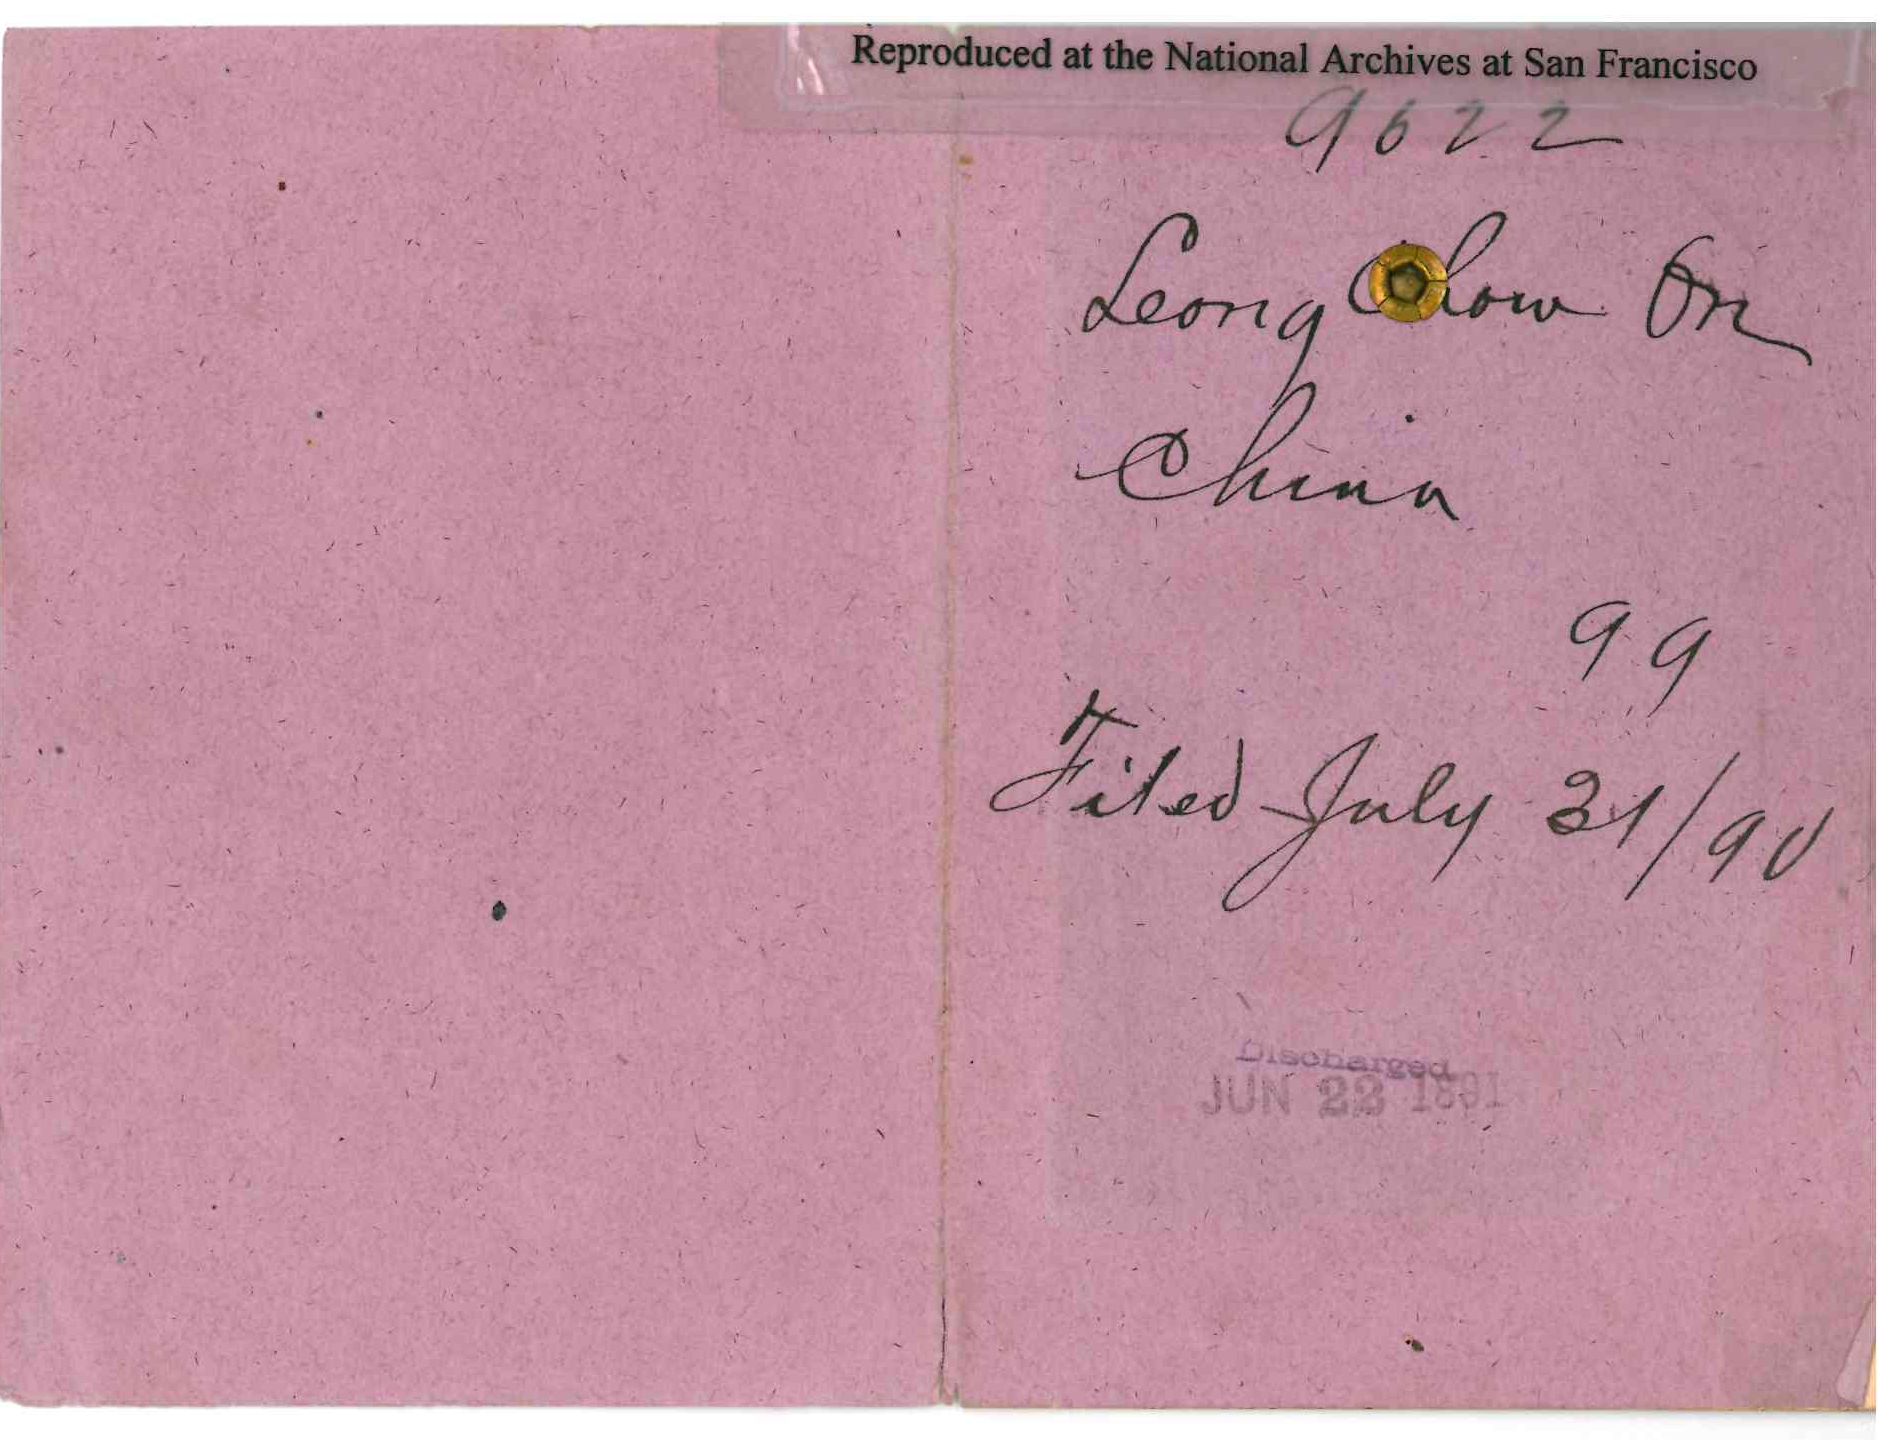 Reproduced at the National Archives at San Francisco
9622
Leong Chow On
China
99
Filed July 31/90
Discharged
JUN 22 1891